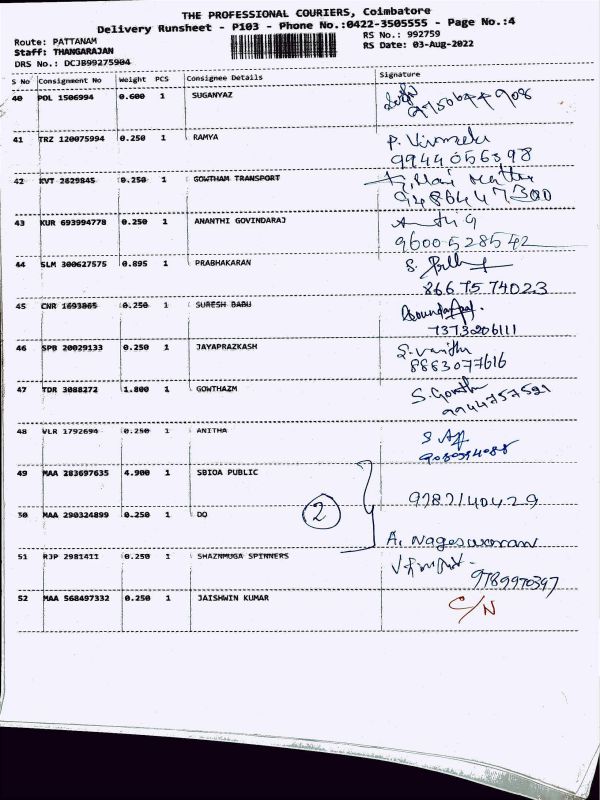 THE PROFESSIONAL COURIERS, Coimbatore
Delivery Runsheet - P103 - Phone No.:0422-3505555 - Page No.:4
Route: PATTANAM RS No.: 992759
Staff: THANGARAJAN RS Date: 03-Aug-2022
DRS No.: DCJ899275904
S No Consignment No Weight PCS Consignee Details Signature
40 POL 1506994 0.600 1 SUGANYAZ
41 TRZ 120075994 0.250 1 RAMYA P.
9944056398
42 KVT 2629845 0.250 1 GOWTHAM TRANSPORT
9486447300
43 KUR 693994778 0.250 1 ANANTHI GOVINDARAJ
9600528542
44 SLM 300627575 0.895 1 PRABHAKARAN S.
866 75 74023
45 CNR 1693865 0.250 1 SURESH BABU
7373206111
46 SPB 20029133 0.250 1 JAYAPRAZKASH S. Vanitha
8863077616
47 TDR 3088272 1.800 1 GOWTHAZM S. Gowtha
9944757521
48 VLR 1792694 0.250 1 ANITHA
49 MAA 283697635 4.900 1 SBIOA PUBLIC
9787140429
50 MAA 290324899 0.250 1 DO 2
A. Nageswaran
51 RJP 2981411 0.250 1 SHAZNMUGA SPINNERS
9789970397
52 MAA 568497332 0.250 1 JAISHWIN KUMAR C/N